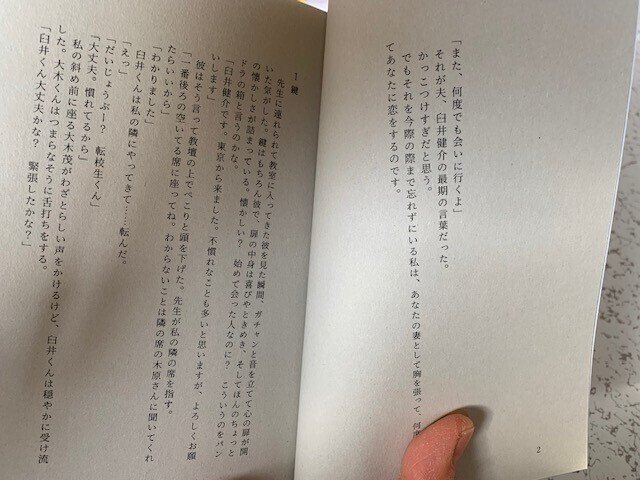 「また、何度でも会いに行くよ」
それが夫、臼井健介の最期の言葉だった。
かっこつけすぎだと思う。
でもそれを今際の際まで忘れずにいる私は、あなたの妻として胸を張って、何度
てあなたに恋をするのです。
2
1 鍵
先生に連れられて教室に入ってきた彼を見た瞬間、ガチャンと音を立てて心の扉が開
いた気がした。鍵はもちろん彼で、扉の中身は喜びやときめき、そしてほんのちょっと
の懐かしさが詰まっている。懐かしい？ 始めて会った人なのに？ こういうのをパン
ドラの箱と言うのかな。
「臼井健介です。東京から来ました。不慣れなことも多いと思いますが、よろしくお願
いします」
彼はそう言って教壇の上でぺこりと頭を下げた。先生が私の隣の席を指す。
「一番後ろの空いてる席に座ってね。わからないことは隣の席の木原さんに聞いてくれ
たらいいから」
「わかりました」
臼井くんは私の隣にやってきて……転んだ。
「えっ」
「だいじょうぶー？ 転校生くん」
「大丈夫。慣れてるから」
私の斜め前に座る大木茂がわざとらしい声をかけるけど、臼井くんは穏やかに受け流
した。大木くんはつまらなそうに舌打ちをする。
「臼井くん大丈夫かな？ 緊張したかな？」